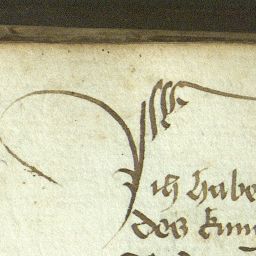 Ich habe
des kun